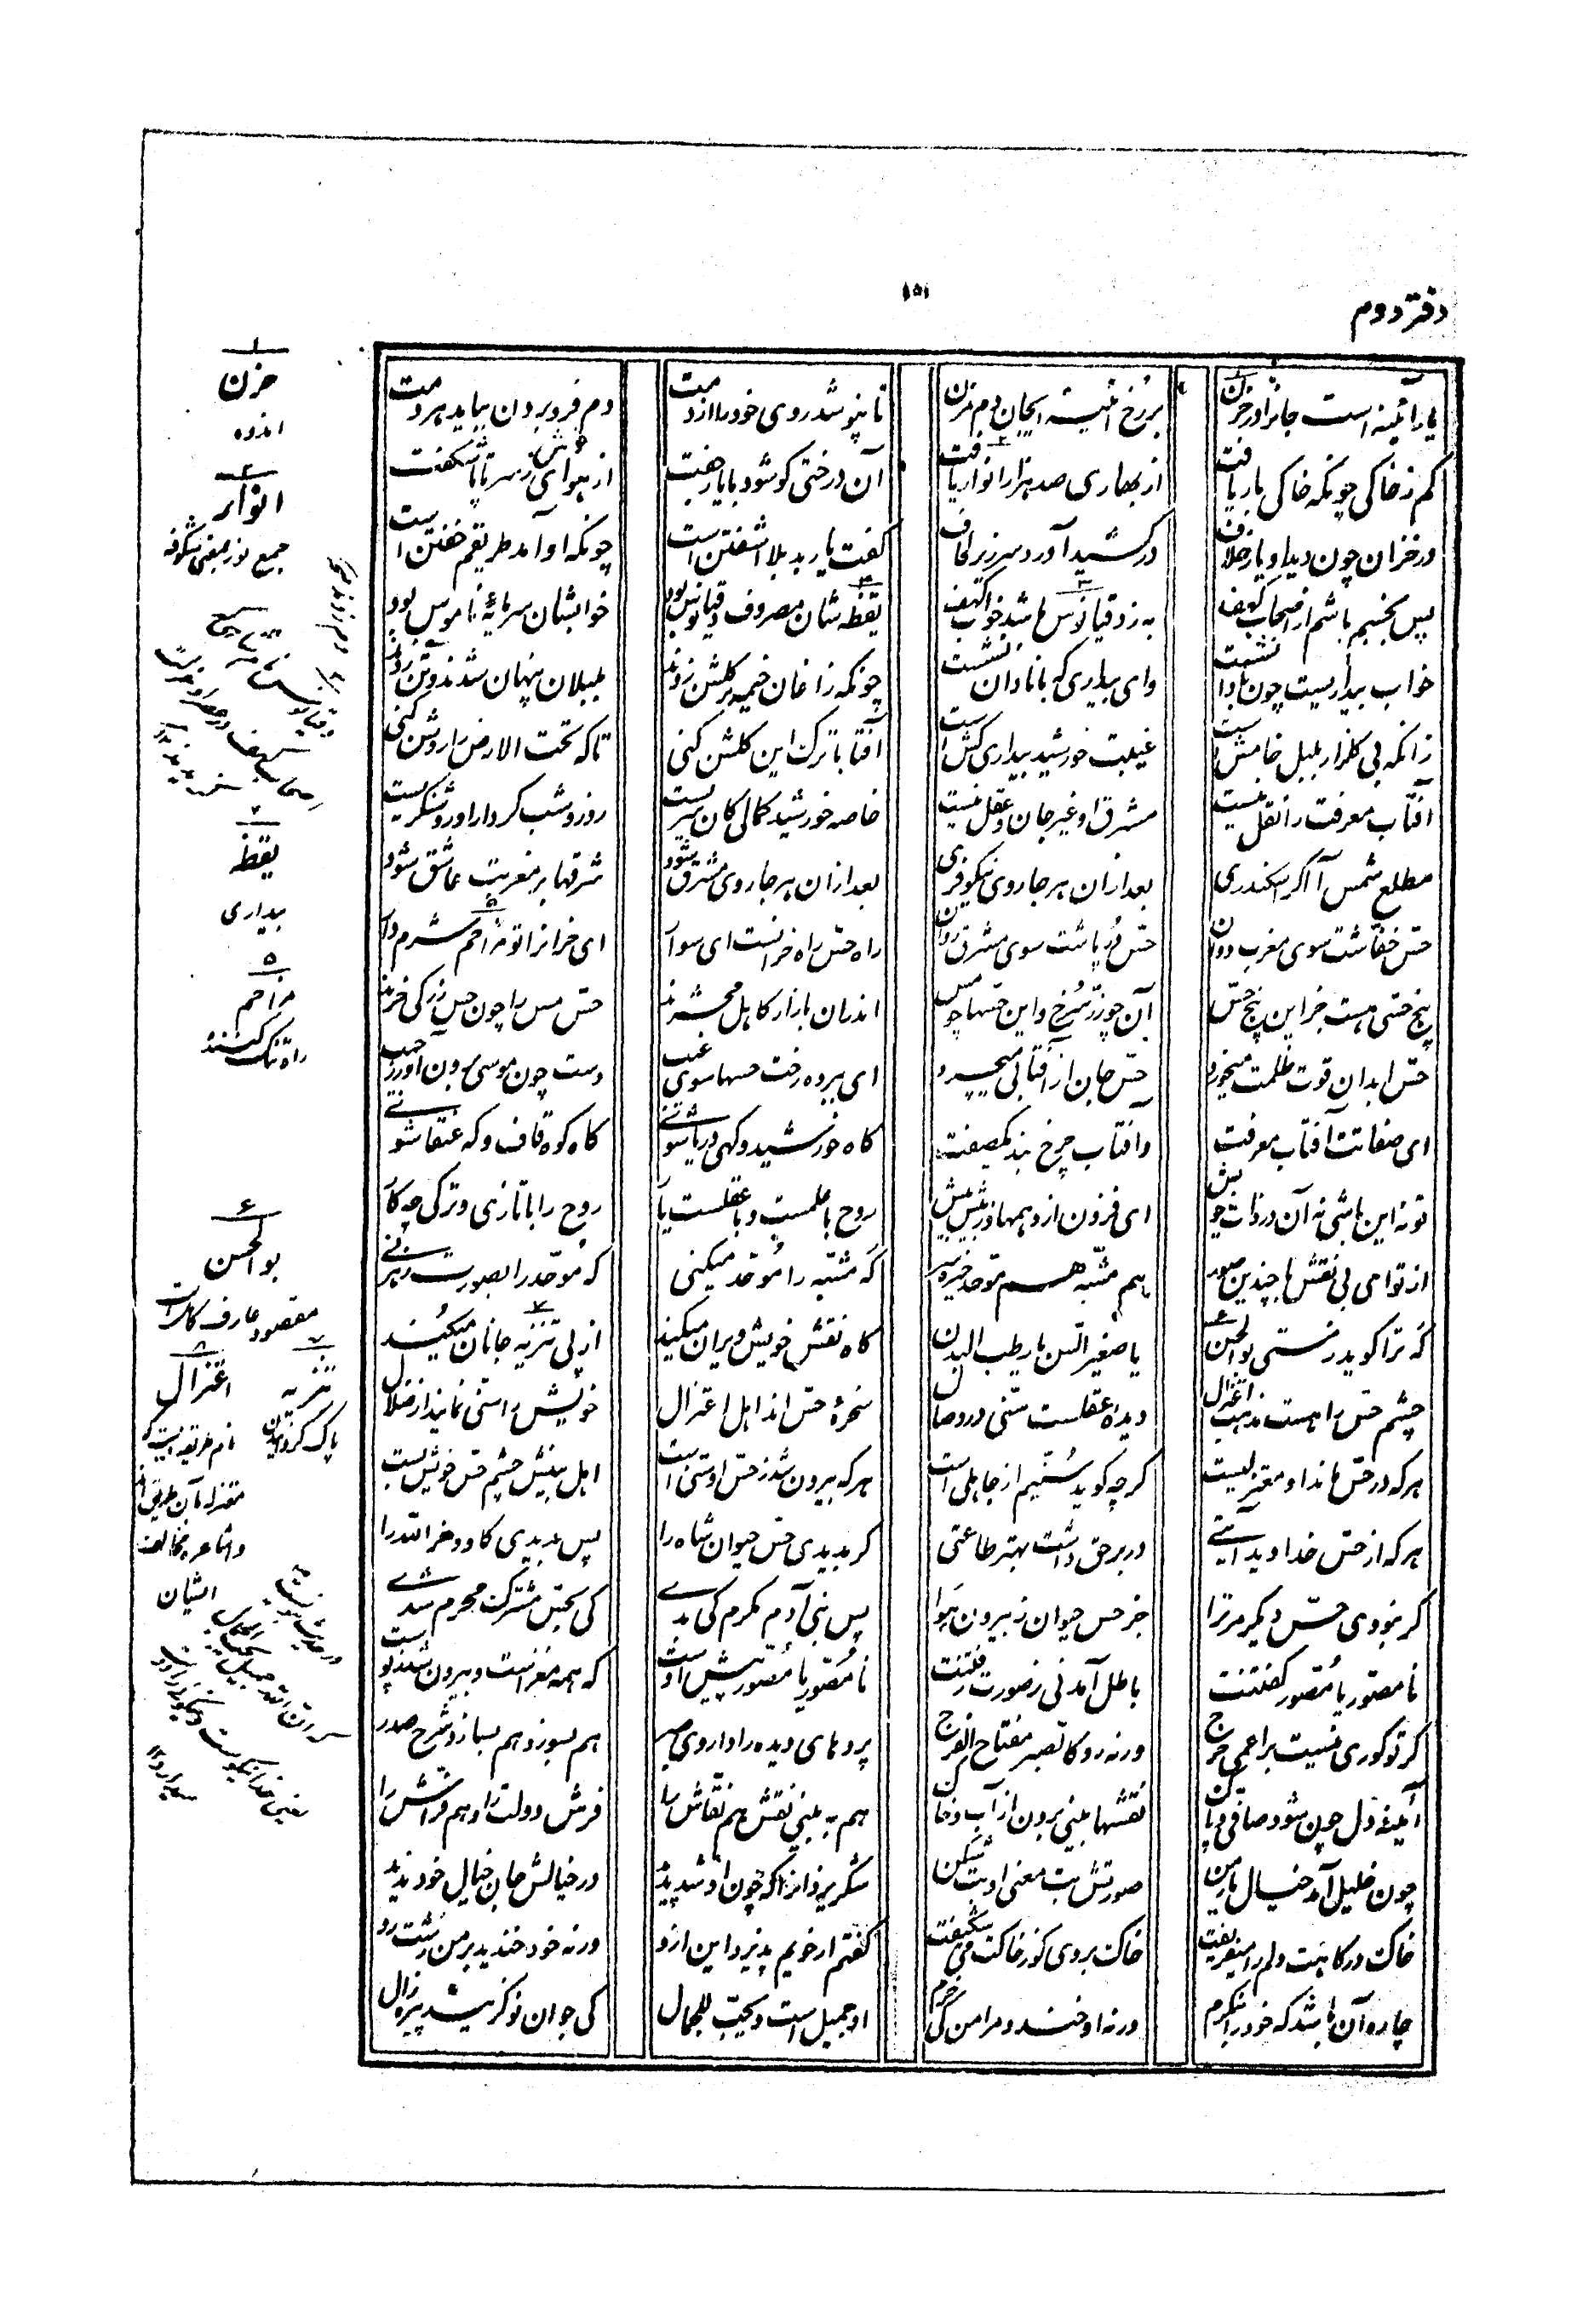 دفتر دوم
۱۵۱
یار آئینه است جانرا در حزن	بر رخ آئینه ایجان دم مزن	تا نپوشد روی خود را از دمت	دم فرو بردن بباید هر دمت
کم ز خاکی چونکه خاکی یار یافت	از بهاری صد هزار انوار یافت	آن درختی کو شود با یار جفت	از هوای خوش ز سر تا پا شکفت
در خزان چون دید او یار خلاف	در کشید او رو و سر زیر لحاف	گفت یار بد بلا آشفتن است	چونکه او آمد طریقم خفتن است
پس بخسبم باشم از اصحاب کهف	به ز دقیانوس باشد خواب کهف	یقظه شان مصروف دقیانوس بود	خوابشان سرمایهٔ ناموس بود
خواب بیداریست چون با دانشست	وای بیداری که با نادان نشست	چونکه زاغان خیمه بر گلشن زدند	بلبلان پنهان شدند و تن زدند
زانکه بی گلزار بلبل خامش است	غیبت خورشید بیداری کش است	آفتابا ترک این گلشن کنی	تا که تحت الارض را روشن کنی
آفتاب معرفت را نقل نیست	مشرق او غیر جان و عقل نیست	خاصه خورشید کمالی کان سریست	روز و شب کردار او روشنگریست
مطلع شمس آ اگر اسکندری	بعد از آن هر جا روی نیکو فری	بعد از آن هر جا روی مشرق شود	شرقها بر مغربت عاشق شود
حسّ خفّاشت سوی مغرب دوان	حسّ دُرپاشت سوی مشرق روان	راه حسّ راه خرانست ای سوار	ای خرانرا تو مزاحم شرم دار
پنج حسّی هست جز این پنج حسّ	آن چو زرّ سُرخ و این حسّها چو مس	اندران بازار کاهل محشرند	حسّ مس را چون حس زر کی خرند
حسّ ابدان قوت ظلمت میخورد	حسّ جان از آفتابی میچرد	ای ببرده رخت حسها سوی غیب	دست چون موسی برون آور ز جیب
ای صفاتت آفتاب معرفت	وافتاب چرخ بند یکصفت	گاه خورشید و گهی دریا شوی	گاه کوه قاف و گه عنقا شوی
تو نه این باشی نه آن در ذات خویش	ای فزون از وهمها وز بیش بیش	روح با علمست و با عقلست یار	روح را با تازی و ترکی چه کار
از تو ای بی نقش با چندین صور	هم مشبّه هم موحّد خیره سر	گه مشبّه را موحّد میکنی	گه موحّد را بصورت رهزنی
گه ترا گوید ز مستی بوالحسن	یا صغیر السّن یا رطب البدن	گاه نقش خویش ویران میکند	از پی تنزیه جانان میکند
چشم حسّ را هست مذهب اعتزال	دیدهٔ عقلست سنّی در وصال	سخرهٔ حسّ اند اهل اعتزال	خویش را سنّی نمایند از ضلال
هر که در حسّ ماند او معتزلیست	گرچه گوید سُنّیم از جاهلی است	هر که بیرون شد ز حسّ او سنّی است	اهل بینش چشم حسّ خویش بست
هر که از حسّ خدا دید آیتی	در بر حق داشت بهتر طاعتی	گر بدیدی حسّ حیوان شاه را	پس بدیدی گاو و خر الله را
گر نبودی حسّ دیگر مر ترا	جز حس حیوان ز بیرون هوا	پس بنی آدم مکرم کی بدی	کی بحسّ مشترک محرم شدی
نا مصوّر یا مصوّر گفتنت	باطل آمد نی ز صورت رفتنت	نا مصوّر یا مصوّر پیش اوست	که همه مغز است و بیرون شد ز پوست
گر تو کوری نیست بر اعمی حرج	ورنه رو کالصبر مفتاح الفرج	پردهای دیده را داروی صبر	هم بسوزد هم بسازد شرح صدر
آئینهٔ دل چون شود صافی و پاک	نقشها بینی برون از آب و خاک	هم به بینی نقش و هم نقّاش را	فرش دولت را و هم فرّاش را
چون خلیل آمد خیال یار من	صورتش بت معنی او بت شکن	شکر یزدانرا که چون او شد پدید	در خیالش جان خیال خود ندید
خاک درگاهت دلم را میفریفت	خاک بر وی کو ز خاکت می شکیفت	گفتم ار خوبم پذیرد این ازو	ورنه خود خندید بر من زشت رو
چاره آن باشد که خود را بنگرم	ورنه او خندد مرا من کی خرم	او جمیل است و یحبّ للجمال	کی جوان نو گزیند پیره زال
۱
حزن
اندوه
۲
انوار
جمع نور بمعنی شکوفه
یقظه
بیداری
۵
مزاحم
راه تنگ کننده
۶
بوالحسن
مقصود عارف کامل است
۷
تنزیه
پاک گردانیدن
۸
اعتزال
نام طریقه ایست که
معتزله بآن طریق‌اند
و اشاعره مخالف
ایشان